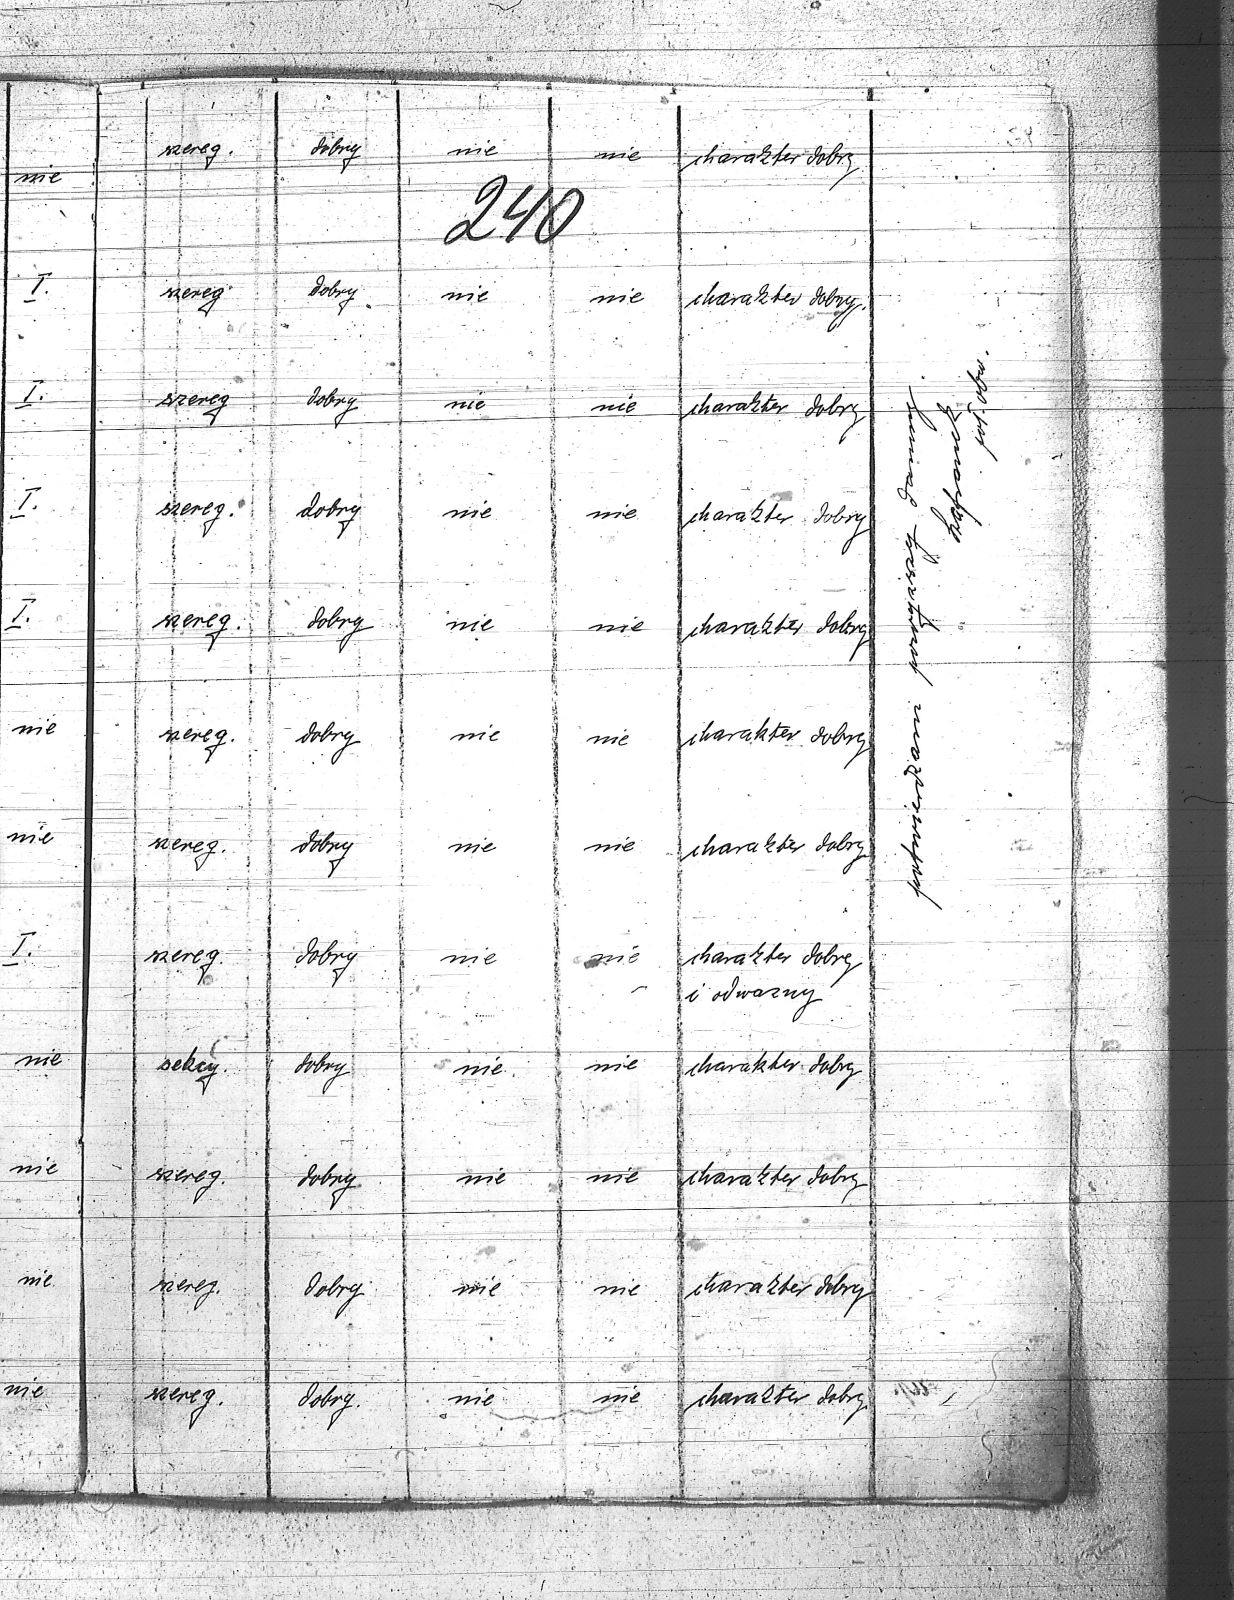 nie szereg. dobry nie nie charakter dobry
240
I. szereg dobry nie nie charakter dobry.
I. szereg dobry nie nie charakter dobry
I. szereg. dobry nie nie charakter dobry
I. szereg. dobry nie nie charakter dobry
nie szereg. dobry nie nie charakter dobry
nie szereg. dobry nie nie charakter dobry
I. szereg. dobry nie nie charakter dobry
i odwazny
nie sekcy. dobry nie. nie charakter dobry
nie szereg. dobry nie nie charakter dobry
nie szereg. dobry nie nie charakter dobry
nie szereg. dobry. nie nie charakter dobry.